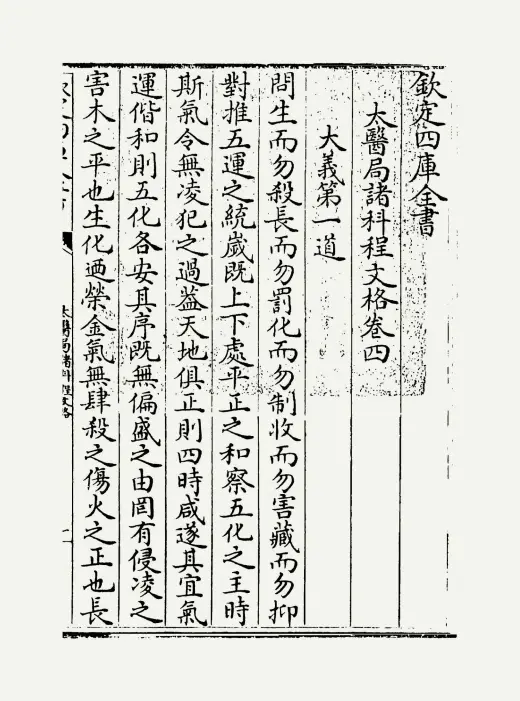 欽定四庫全書
太醫局諸科程文格卷四
大義第一道
問生而勿殺長而勿罰化而勿制收而勿害藏而勿抑
對推五運之統嵗既上下處平正之和察五化之主時
斯氣令無凌犯之過葢天地俱正則四時咸遂其宜氣
運偕和則五化各安其序既無偏盛之由罔有侵凌之
害木之平也生化迺榮金氣無肆殺之傷火之正也長
太醫局諸科程文格